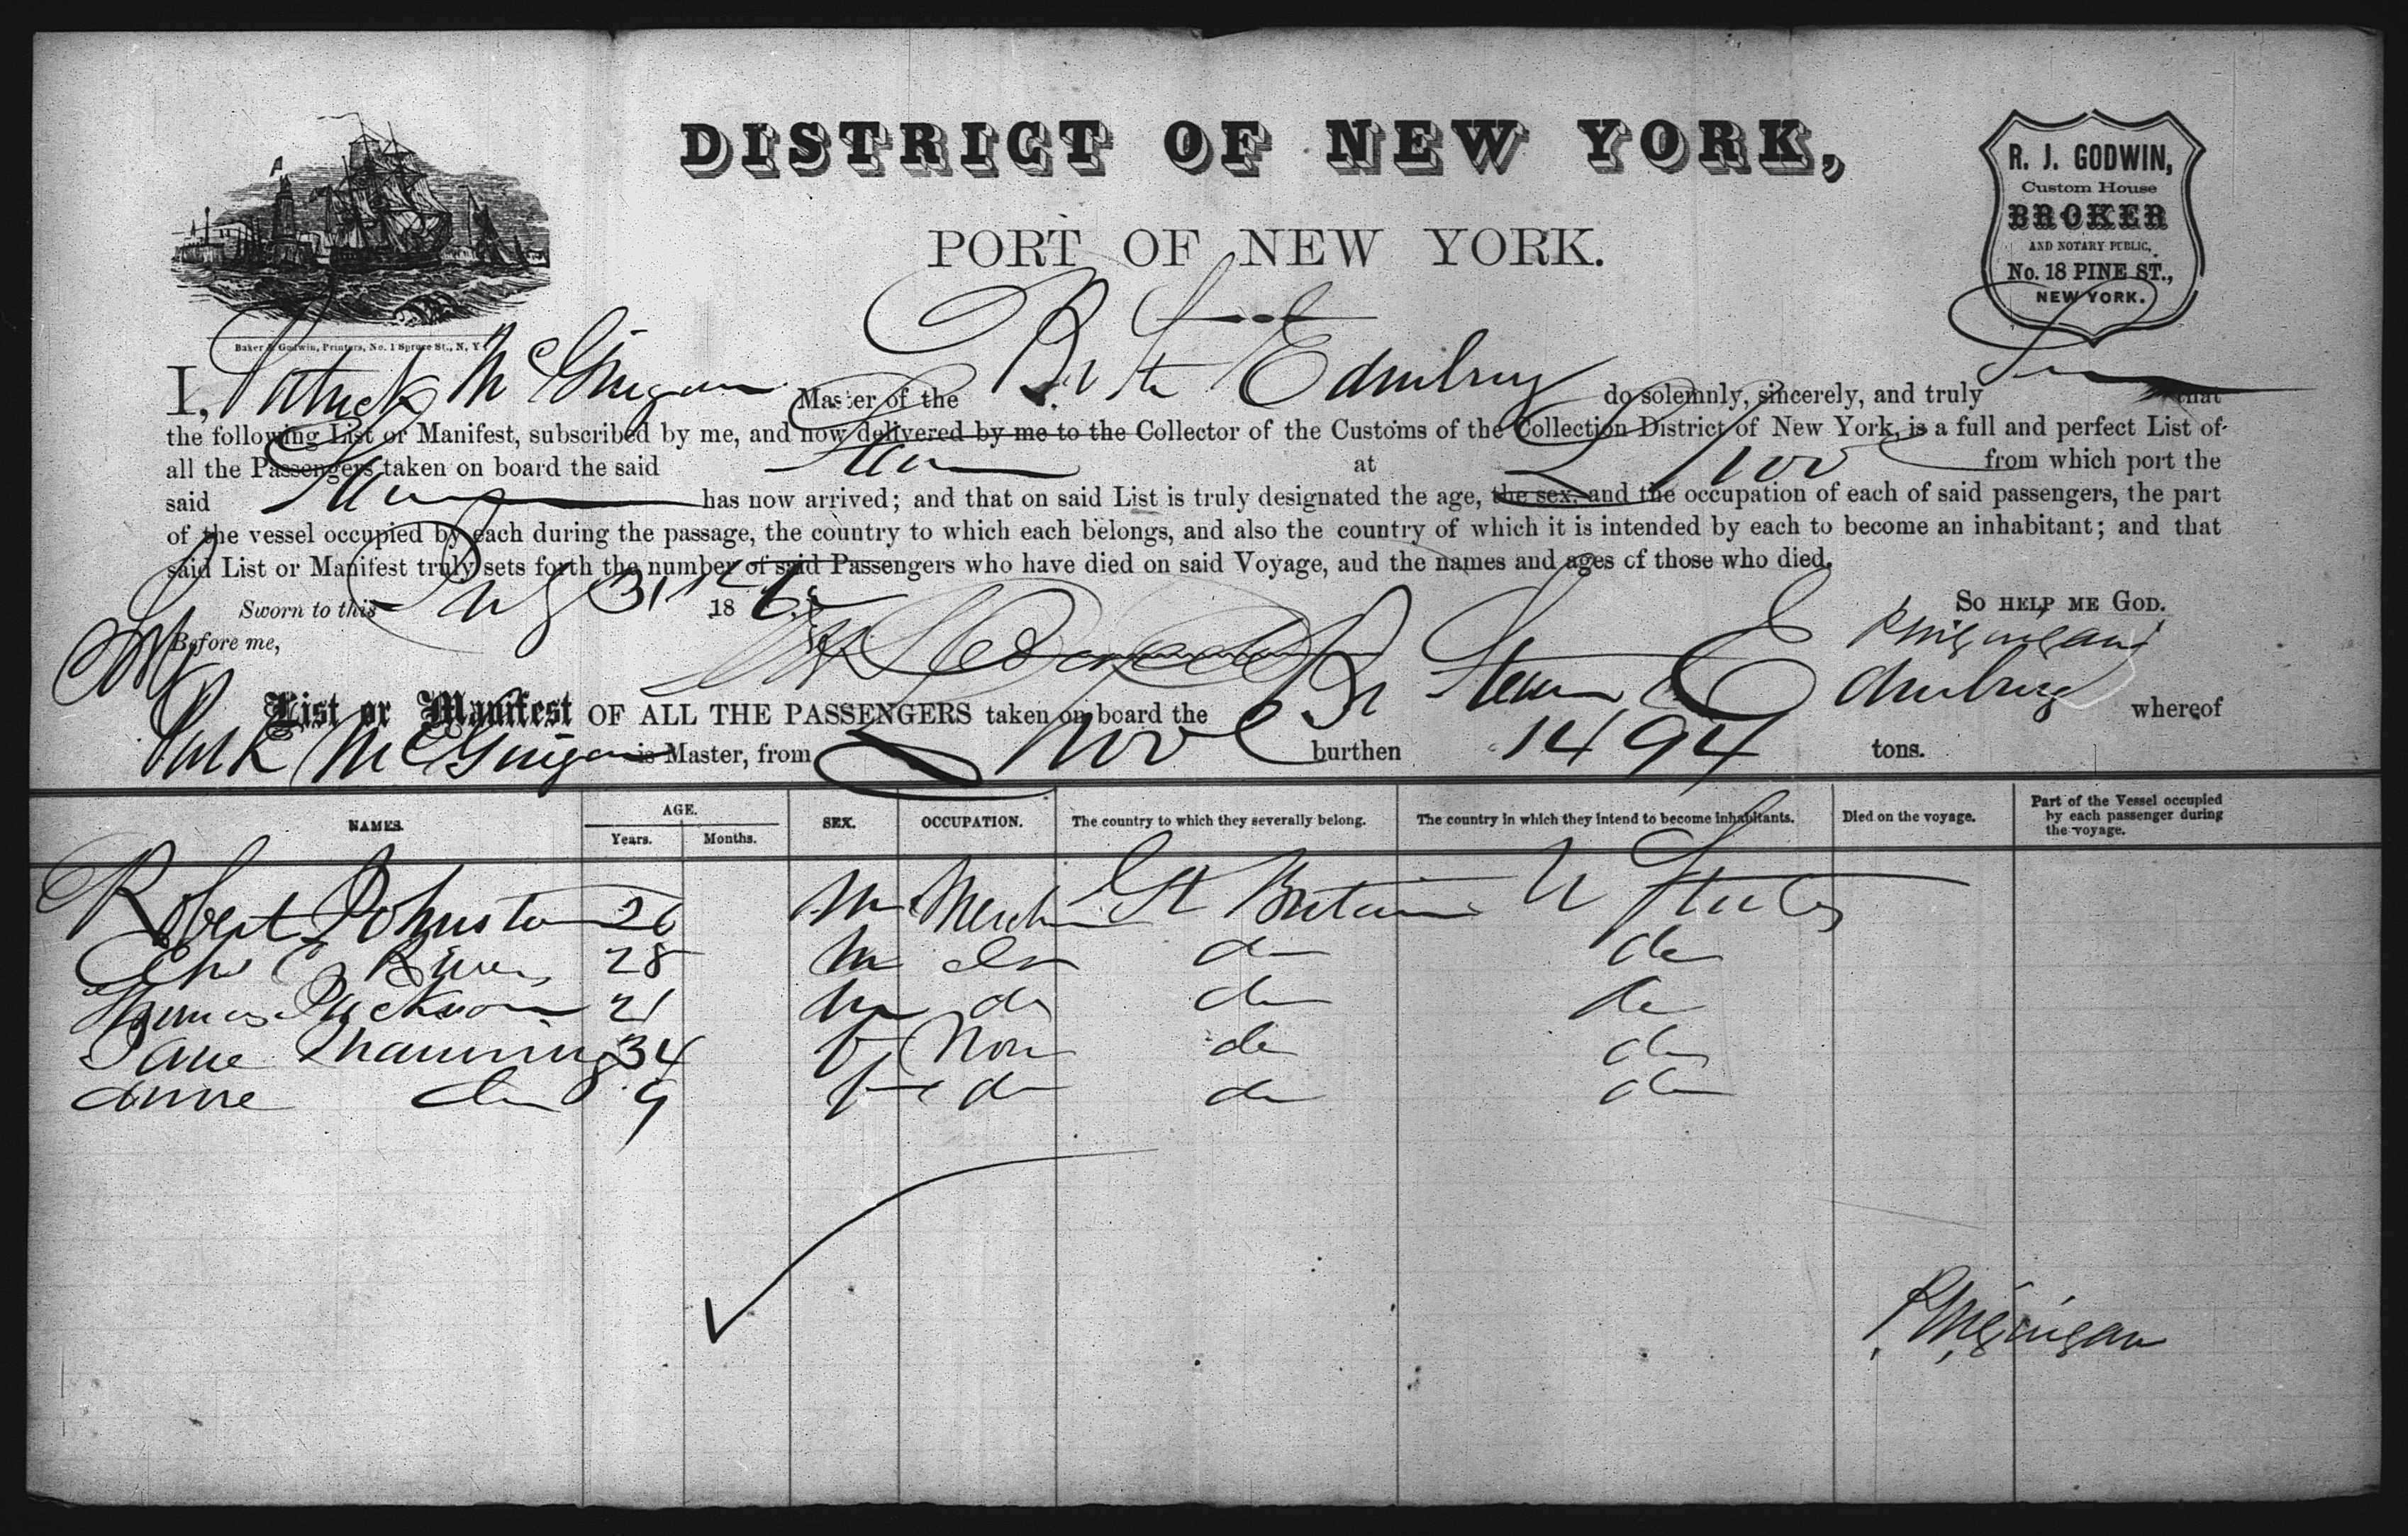 DISTRICT OF NEW YORK,
PORT OF NEW YORK.
R. J. GODWIN,
Custom House
BROKER
AND NOTARY PUBLIC,
No. 18 PINE ST.,
NEW YORK.
Baker & Godwin, Printers, No. 1 Spruce St., N. Y.
I, Patrick McGuigan Master of the Br Str Edinburg do solemnly, sincerely, and truly that
the following List or Manifest, subscribed by me, and now delivered by me to the Collector of the Customs of the Collection District of New York, is a full and perfect List of
all the Passengers taken on board the said Steamer at L'pool from which port the
said Steamer has now arrived; and that on said List is truly designated the age, the sex, and the occupation of each of said passengers, the part
of the vessel occupied by each during the passage, the country to which each belongs, and also the country of which it is intended by each to become an inhabitant; and that
said List or Manifest truly sets forth the number of said Passengers who have died on said Voyage, and the names and ages of those who died.
Sworn to this Aug 31st 186 SO HELP ME GOD.
Before me, P McGuigan
List or Manifest OF ALL THE PASSENGERS taken on board the Br Steamer Edinburg whereof
Patk McGuigan is Master, from L'pool burthen 1494 tons.
NAMES. AGE. Years. Months. SEX. OCCUPATION. The country to which they severally belong. The country in which they intend to become inhabitants. Died on the voyage. Part of the Vessel occupied by each passenger during the voyage.
Robert Johnston 26 M Merch Gt Britain U States
28 M do do do
Thomas Jackson 21 M do do do
Jane Manning 34 F Non do do
Anne do 9 F do do do
P McGuigan